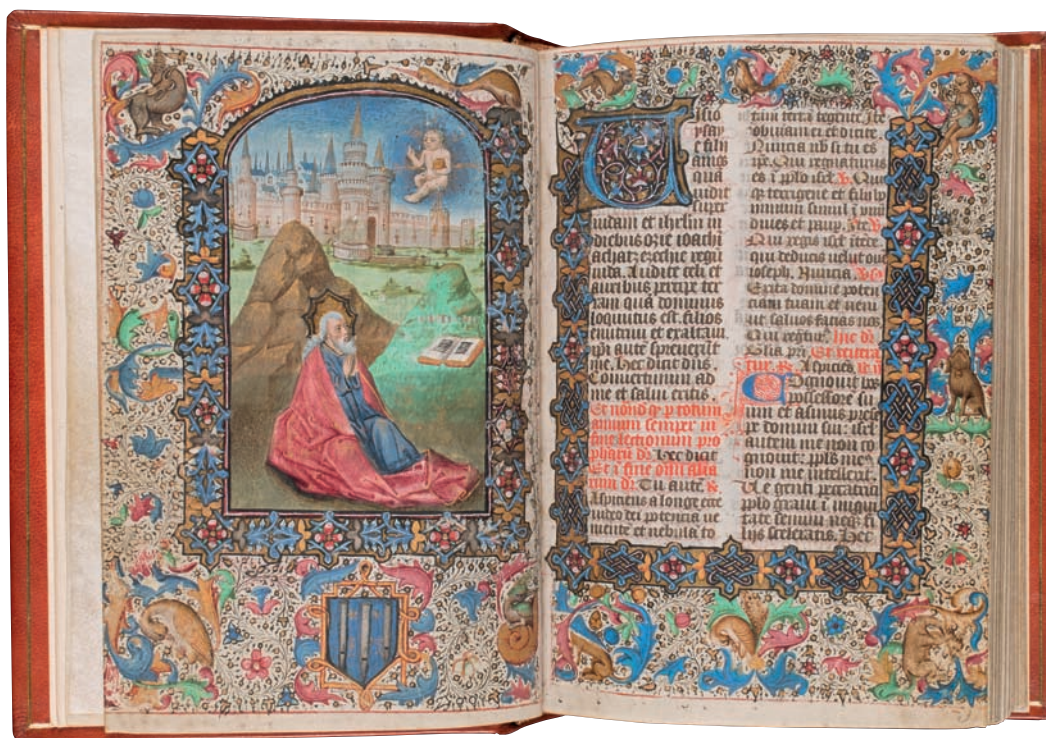 isio
ysay
e filij
amos
quā
uidit
super
iudam et ihrlm in
diebus ozie ioathi
achatz ezechie regū
iuda. Audite celi et
auribus percipe ter
ram quā dominus
loquutus est. filios
enutriui et exaltaui
ipi autē spreuerūt
me. Hec dicit dns.
Conuertimini ad
me et salui eritis.
Et q. p totum
annum semper in
fine lectionum pro
phetarū dr. Hec dicit
Et ī fine oim alia
rum dr. Tu autē. R.
Aspiciens a longe ecce
uideo dei potencia ue
niente et nebula to
tam terra tegente. Ite
obuiam ei et dicite.
Nuncia nb si tu es
ipe. Qui regnaturus
es ī pplo isrl. V. Qui
q terrigene et filij ho
minum simul ī unū
diues et paup. Ite. V.
Qui regis isrl itēde
qui deducis uelut oue
ioseph. Nuncia. V.
Excita domine poten
ciam tuam et ueni
ut saluos facias nos
Qui regtur. Hic dr
Glia pri. Et reitera
tur. R. Aspicies
Cognouit bos
possessorē su
um et asinus prese
pe domini sui: isrl
autem me non co
gnouit: ppls me9
non me intellexit.
Ve genti peccatrici
pplo graui ī iniqui
tate semini neq fi
lijs sceleratis. Hec